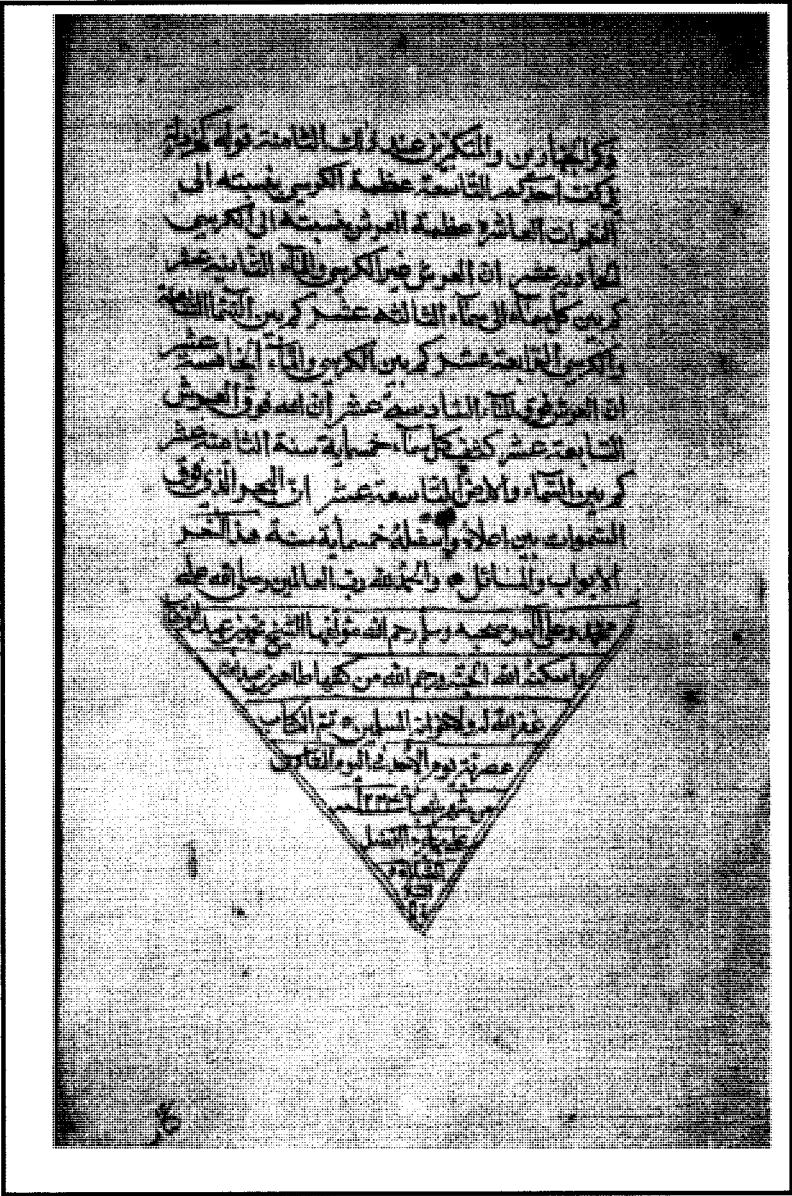 ذكر الجبارين والمتكبرين عند ذلك الثامنة قوله كخردلة
في كف احدكم التاسعة عظمة الكرسي بنسبته الى
السموات العاشرة عظمة العرش بنسبته الى الكرسي
الحادية عشر ان العرش غير الكرسي والماء الثانية عشر
كم بين كل سماء الى سماء الثالثه عشر كم بين السماء السابعة
والكرسي الرابعة عشر كم بين الكرسي والماء الخامسة عشر
ان العرش فوق الماء السادسة عشر ان الله فوق العرش
السابعة عشر كثف كل سماء خمسماية سنة الثامنة عشر
كم بين السماء والارض التاسعة عشر ان البحر الذي فوق
السموات بين اعلاه واسفله خمسماية سنة هذا اخر
الابواب والمسائل والحمد لله رب العالمين وصلى الله على
محمد وعلى اله وصحبه وسلم رحم الله مؤلفها الشيخ محمد بن عبد الوهاب
واسكنه الله الجنة ورحم الله من كتبها
غفر الله له ولاخوانه المسلمين تم الكتاب
عصرية يوم الأحد اليوم
من شهر
افضل
الصلاة